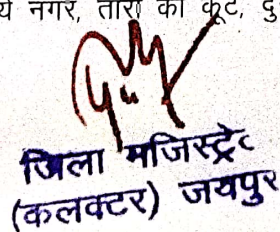 नगर, तारों का कूट,
जिला मजिस्ट्रेट
(कलक्टर) जयपुर